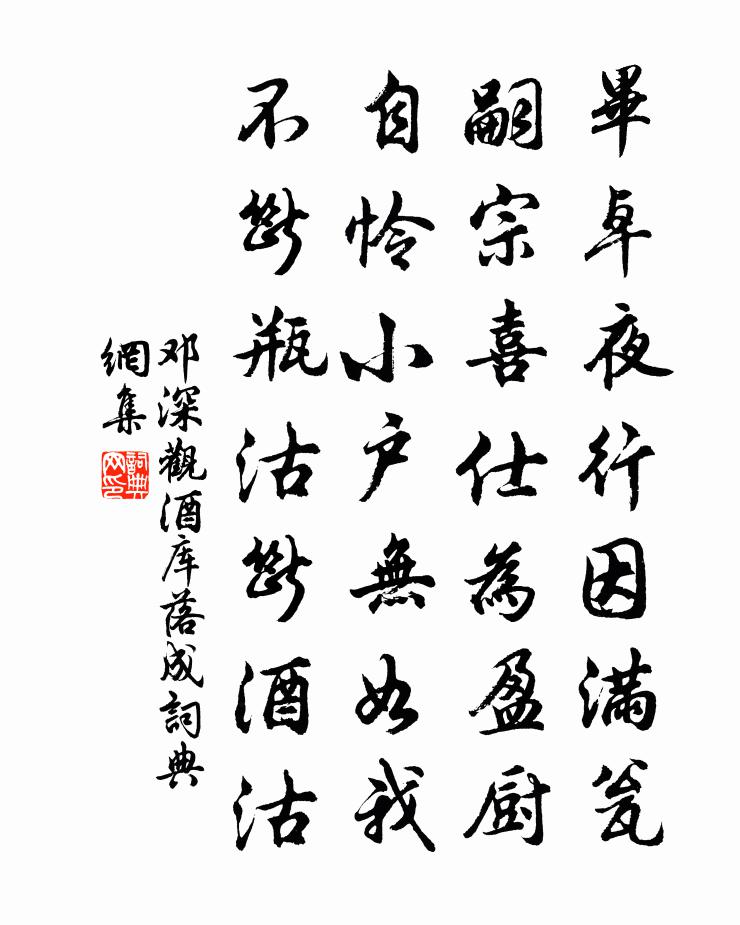 畢卓夜行因滿瓮
嗣宗喜仕為盈厨
自怜小户無如我
不斷瓶沽斷酒沽
邓深觀酒库落成詞典
網集
詞典网印